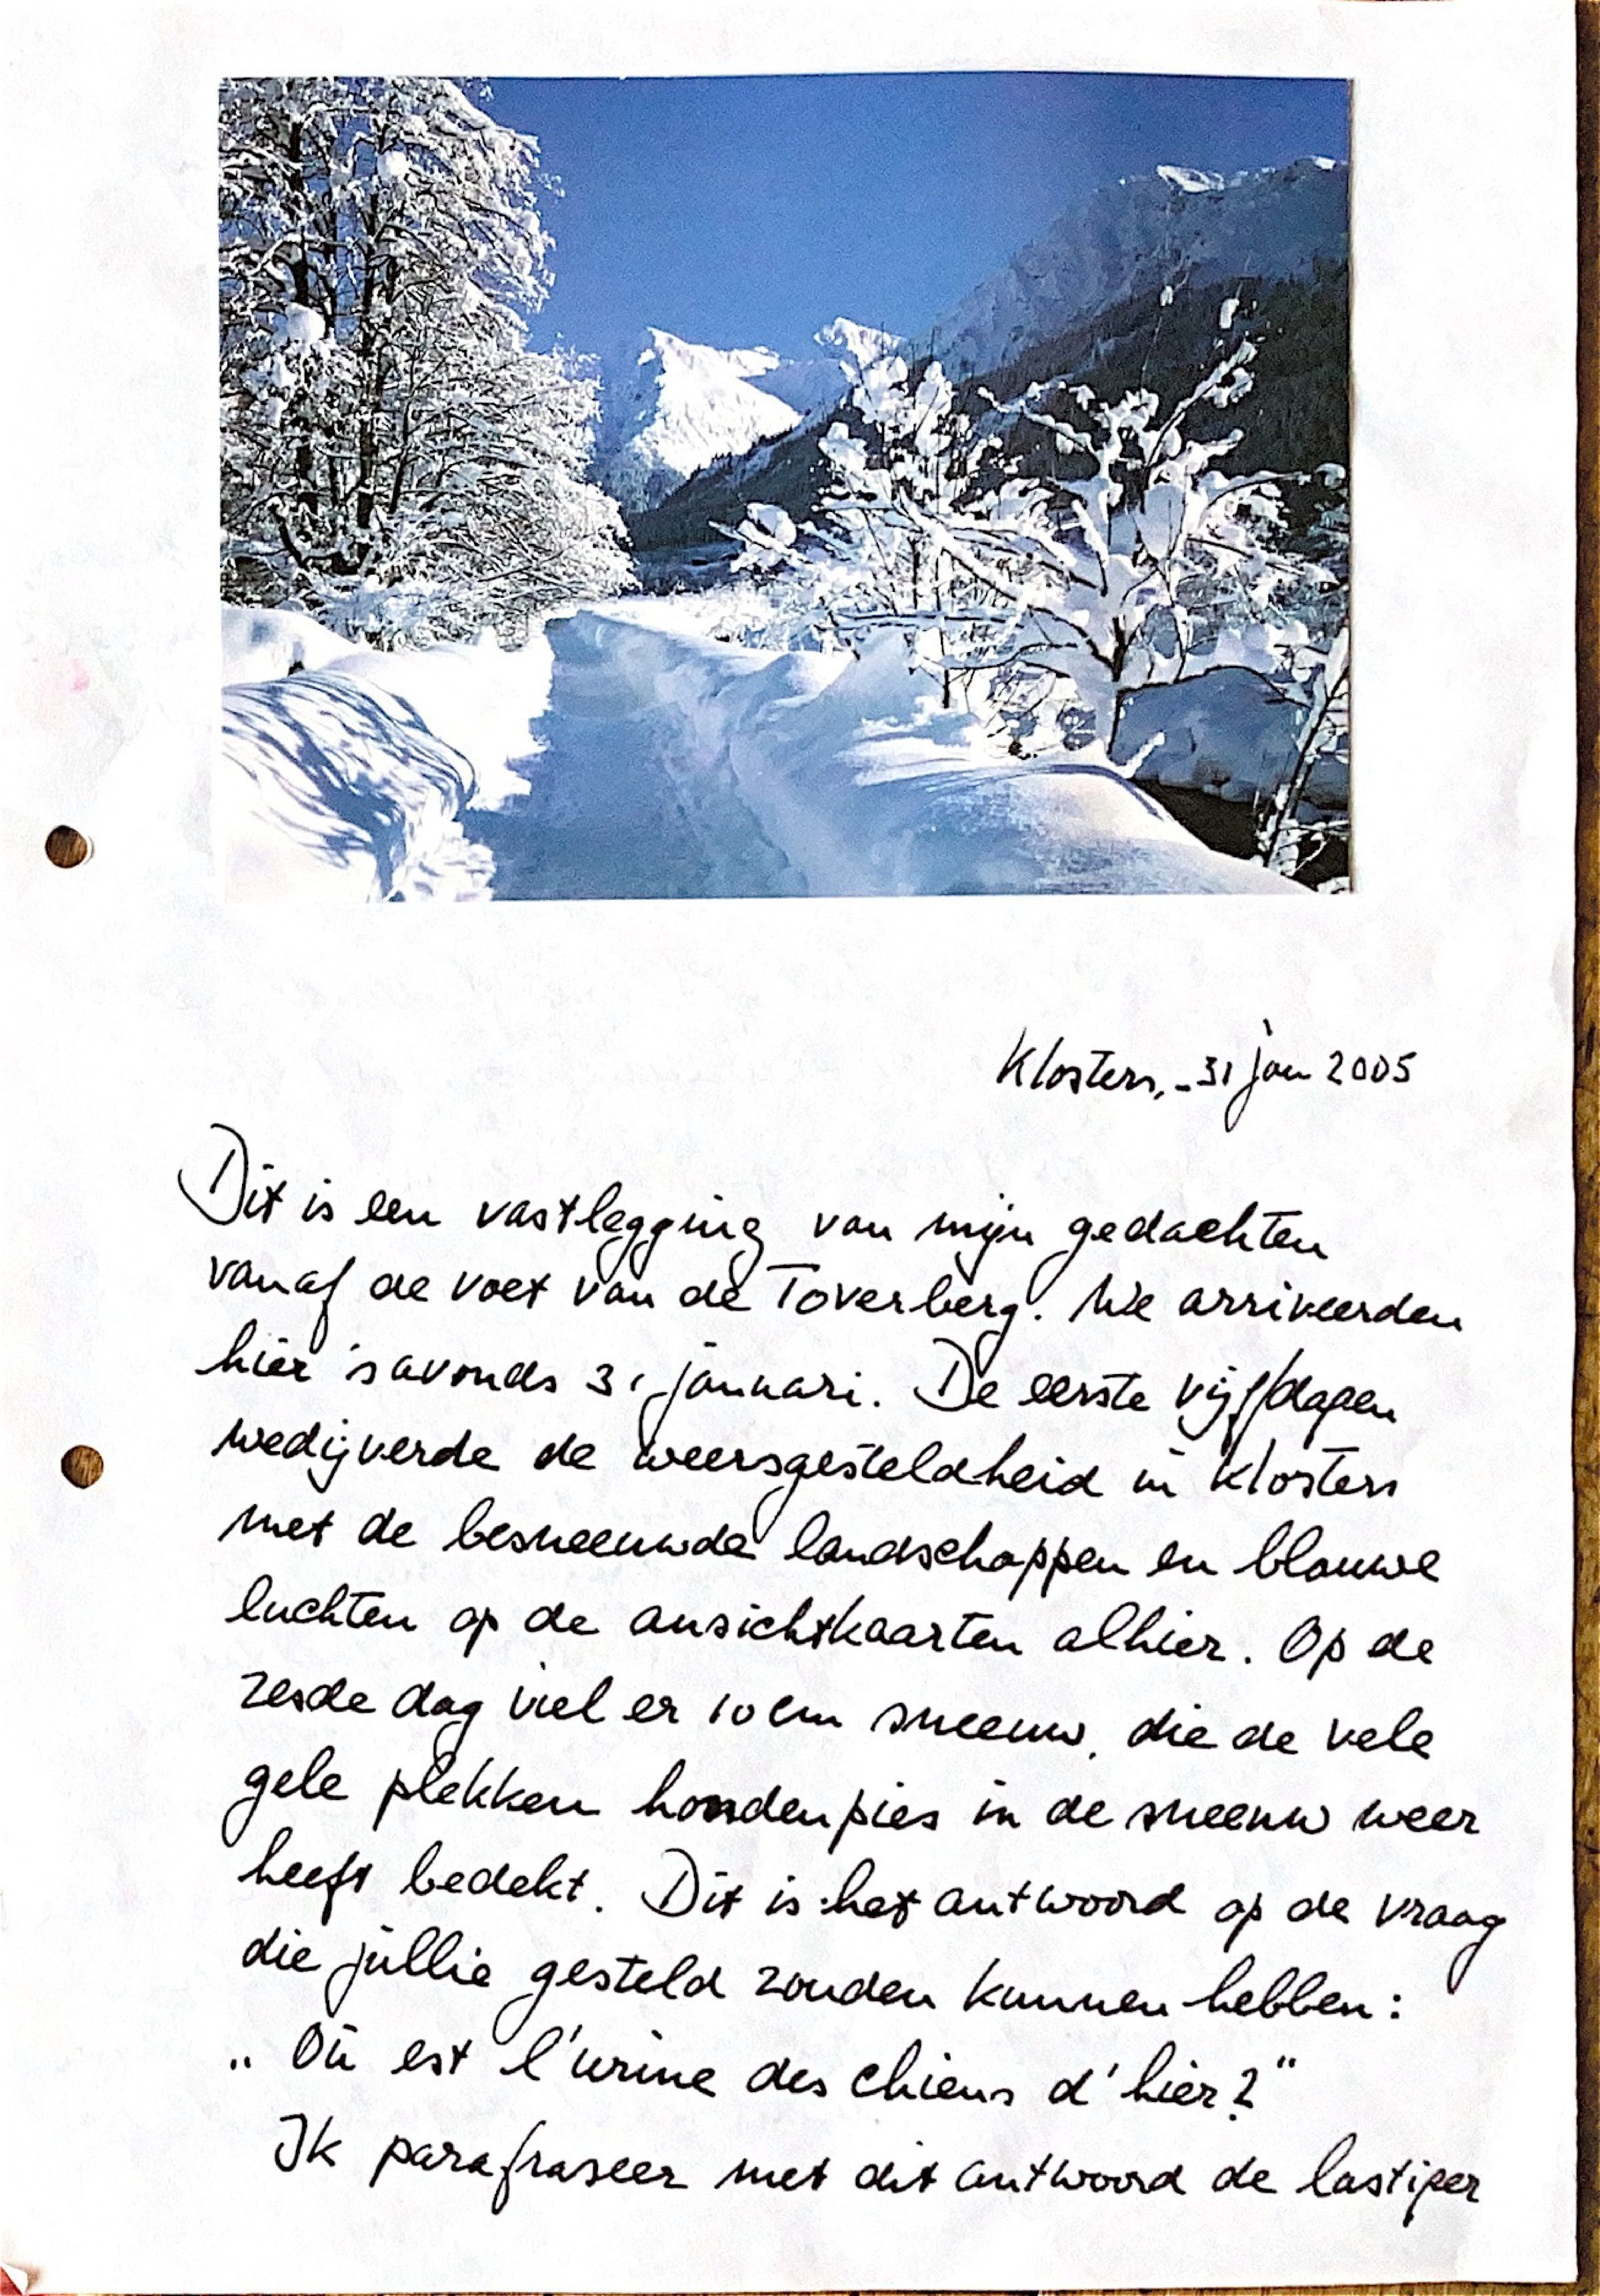 Klosters, - 31 jan 2005
Dit is een vastlegging van mijn gedachten
vanaf de voet van de Toverberg. We arriveerden
hier 's avonds 31 januari. De eerste vijf dagen
wedijverde de weersgesteldheid in Klosters
met de besneeuwde landschappen en blauwe
luchten op de ansichtkaarten alhier. Op de
zesde dag viel er 10 cm sneeuw, die de vele
gele plekken hondenpies in de sneeuw weer
heeft bedekt. Dit is het antwoord op de vraag
die jullie gesteld zouden kunnen hebben:
„Où est l'urine des chiens d'hier?"
Ik parafraseer met dit antwoord de lastiger